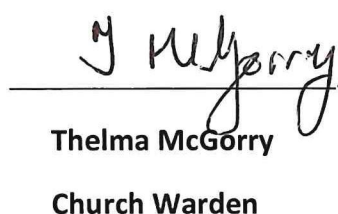 T McGorry
Thelma McGorry
Church Warden